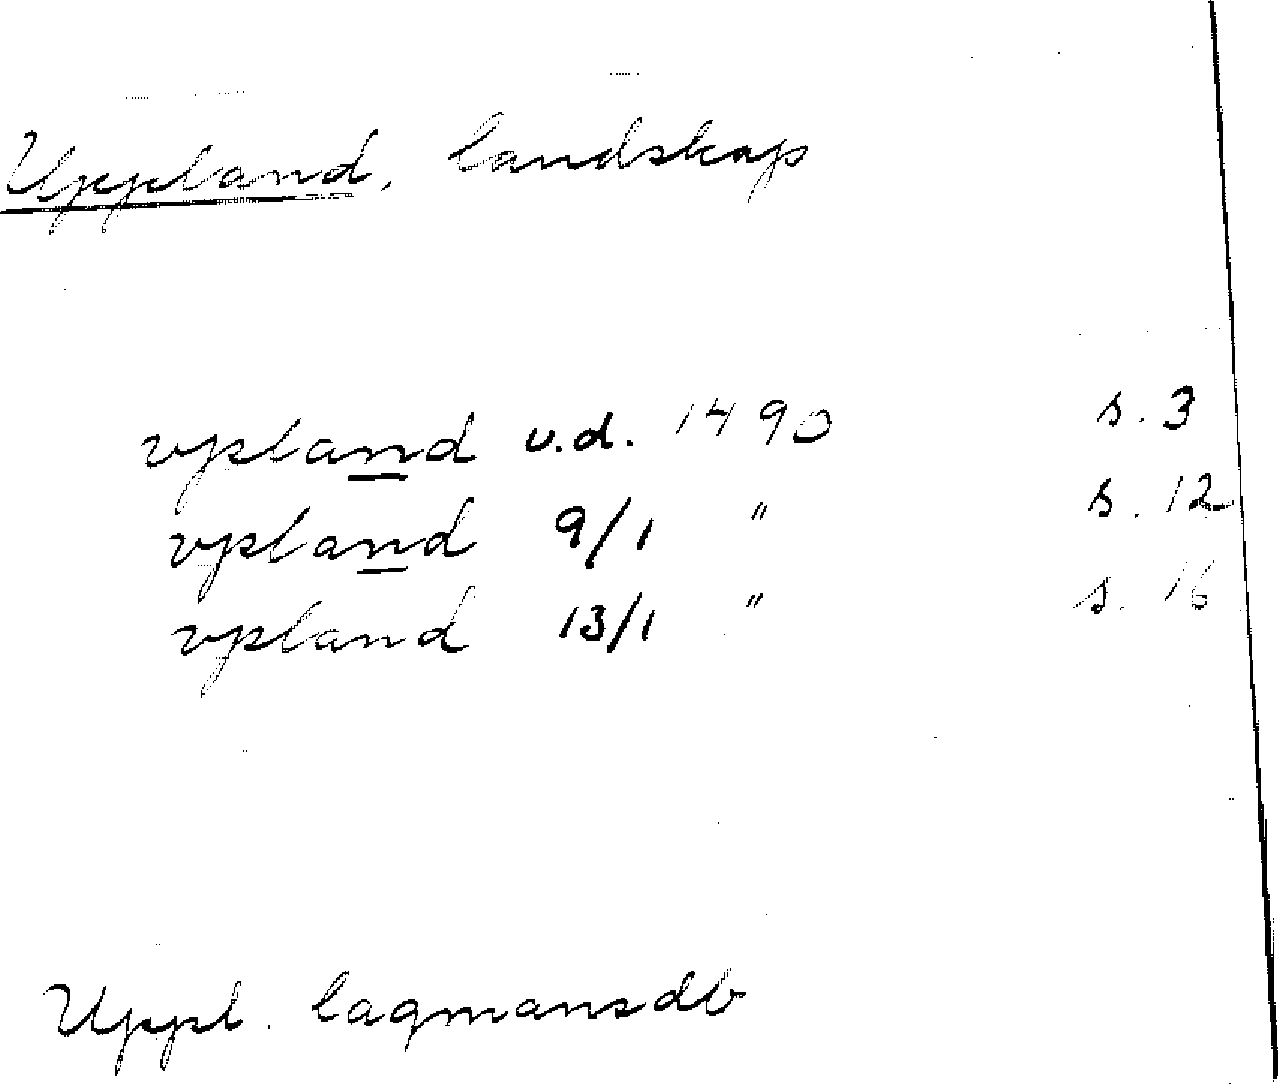 Uppland, landskap
vpland u.d. 1490 s. 3
vpland 9/1 " s. 12
vpland 13/1 " s. 16
Uppl. lagmansdb